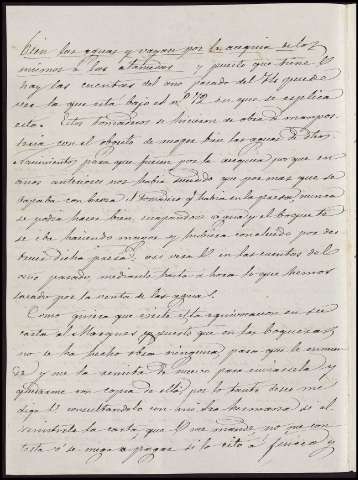 bien las aguas y vayan por la acequia de los
mismos a las alamedas y puesto que tiene V.
hay las cuentas del año pasado del 74 puede
ver la que esta bajo el nº 72 en que se esplica
esto. Estos tomaderos se hicieron de obra de mampos-
teria con el objeto de coger bien las aguas de dhos
nacimientos para que fuesen por la acequia porque en
años anteriores nos habia sucedido que por mas que se
tapaba con broza el tomadero que habia en la presa nunca
se podia hacer bien, escapandose agua y el boquete
se iba haciendo mayor y hubiera concluido por des-
truir dicha presa. asi vera V. en las cuentas del
año pasado, mediante hasta ahora lo que hemos
sacado por la venta de las aguas.
Como quiera que existe esta equivocacion en su
carta al Marques, puesto que en los boquerones
no se ha hecho obra ninguna para que le enmien-
de y me la remita de nuevo para enviarsela y
quedarme con copia de ella, por lo tanto deseo me
diga V. consultandolo con mi hermano si al
remitirle la carta, que V. me mande, no me con-
testa ó se niega a pagar si lo cito a juicio y